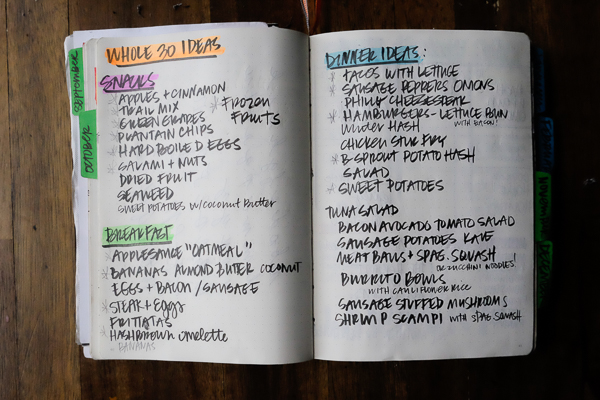 SEPTEMBER
OCTOBER
WHOLE 30 IDEAS
SNACKS
* APPLES + CINNAMON
* TRAIL MIX
* FROZEN FRUITS
* GREEN GRAPES
* PLANTAIN CHIPS
* HARD BOILED EGGS
* SALAMI + NUTS
DRIED FRUIT
SEAWEED
SWEET POTATOES w/coconut Butter
BREAKFAST
* APPLESAUCE "OATMEAL"
* BANANAS ALMOND BUTTER COCONUT
* EGGS + BACON / SAUSAGE
* STEAK + Eggs
* FRITTATAS
* HASHBROWN omelette
* BANANAS
DINNER IDEAS:
* TACOS WITH LETTUCE
* SAUSAGE PEPPERS ONIONS
* PHILLY CHEESESTEAK
* HAMBURGERS - LETTUCE BUN
WITH BACON!
HASH
CHICKEN STIR FRY
* B. SPROUT POTATO HASH
SALAD
* SWEET POTATOES
TUNA SALAD
BACON AVOCADO TOMATO SALAD
SAUSAGE POTATOES KALE
MEATBALLS + SPAG. SQUASH
OR ZUCCHINI NOODLES!
BURRITO BOWLS
WITH CAULIFLOWER RICE
SAUSAGE STUFFED MUSHROOMS
SHRIMP SCAMPI with SPAG SQUASH